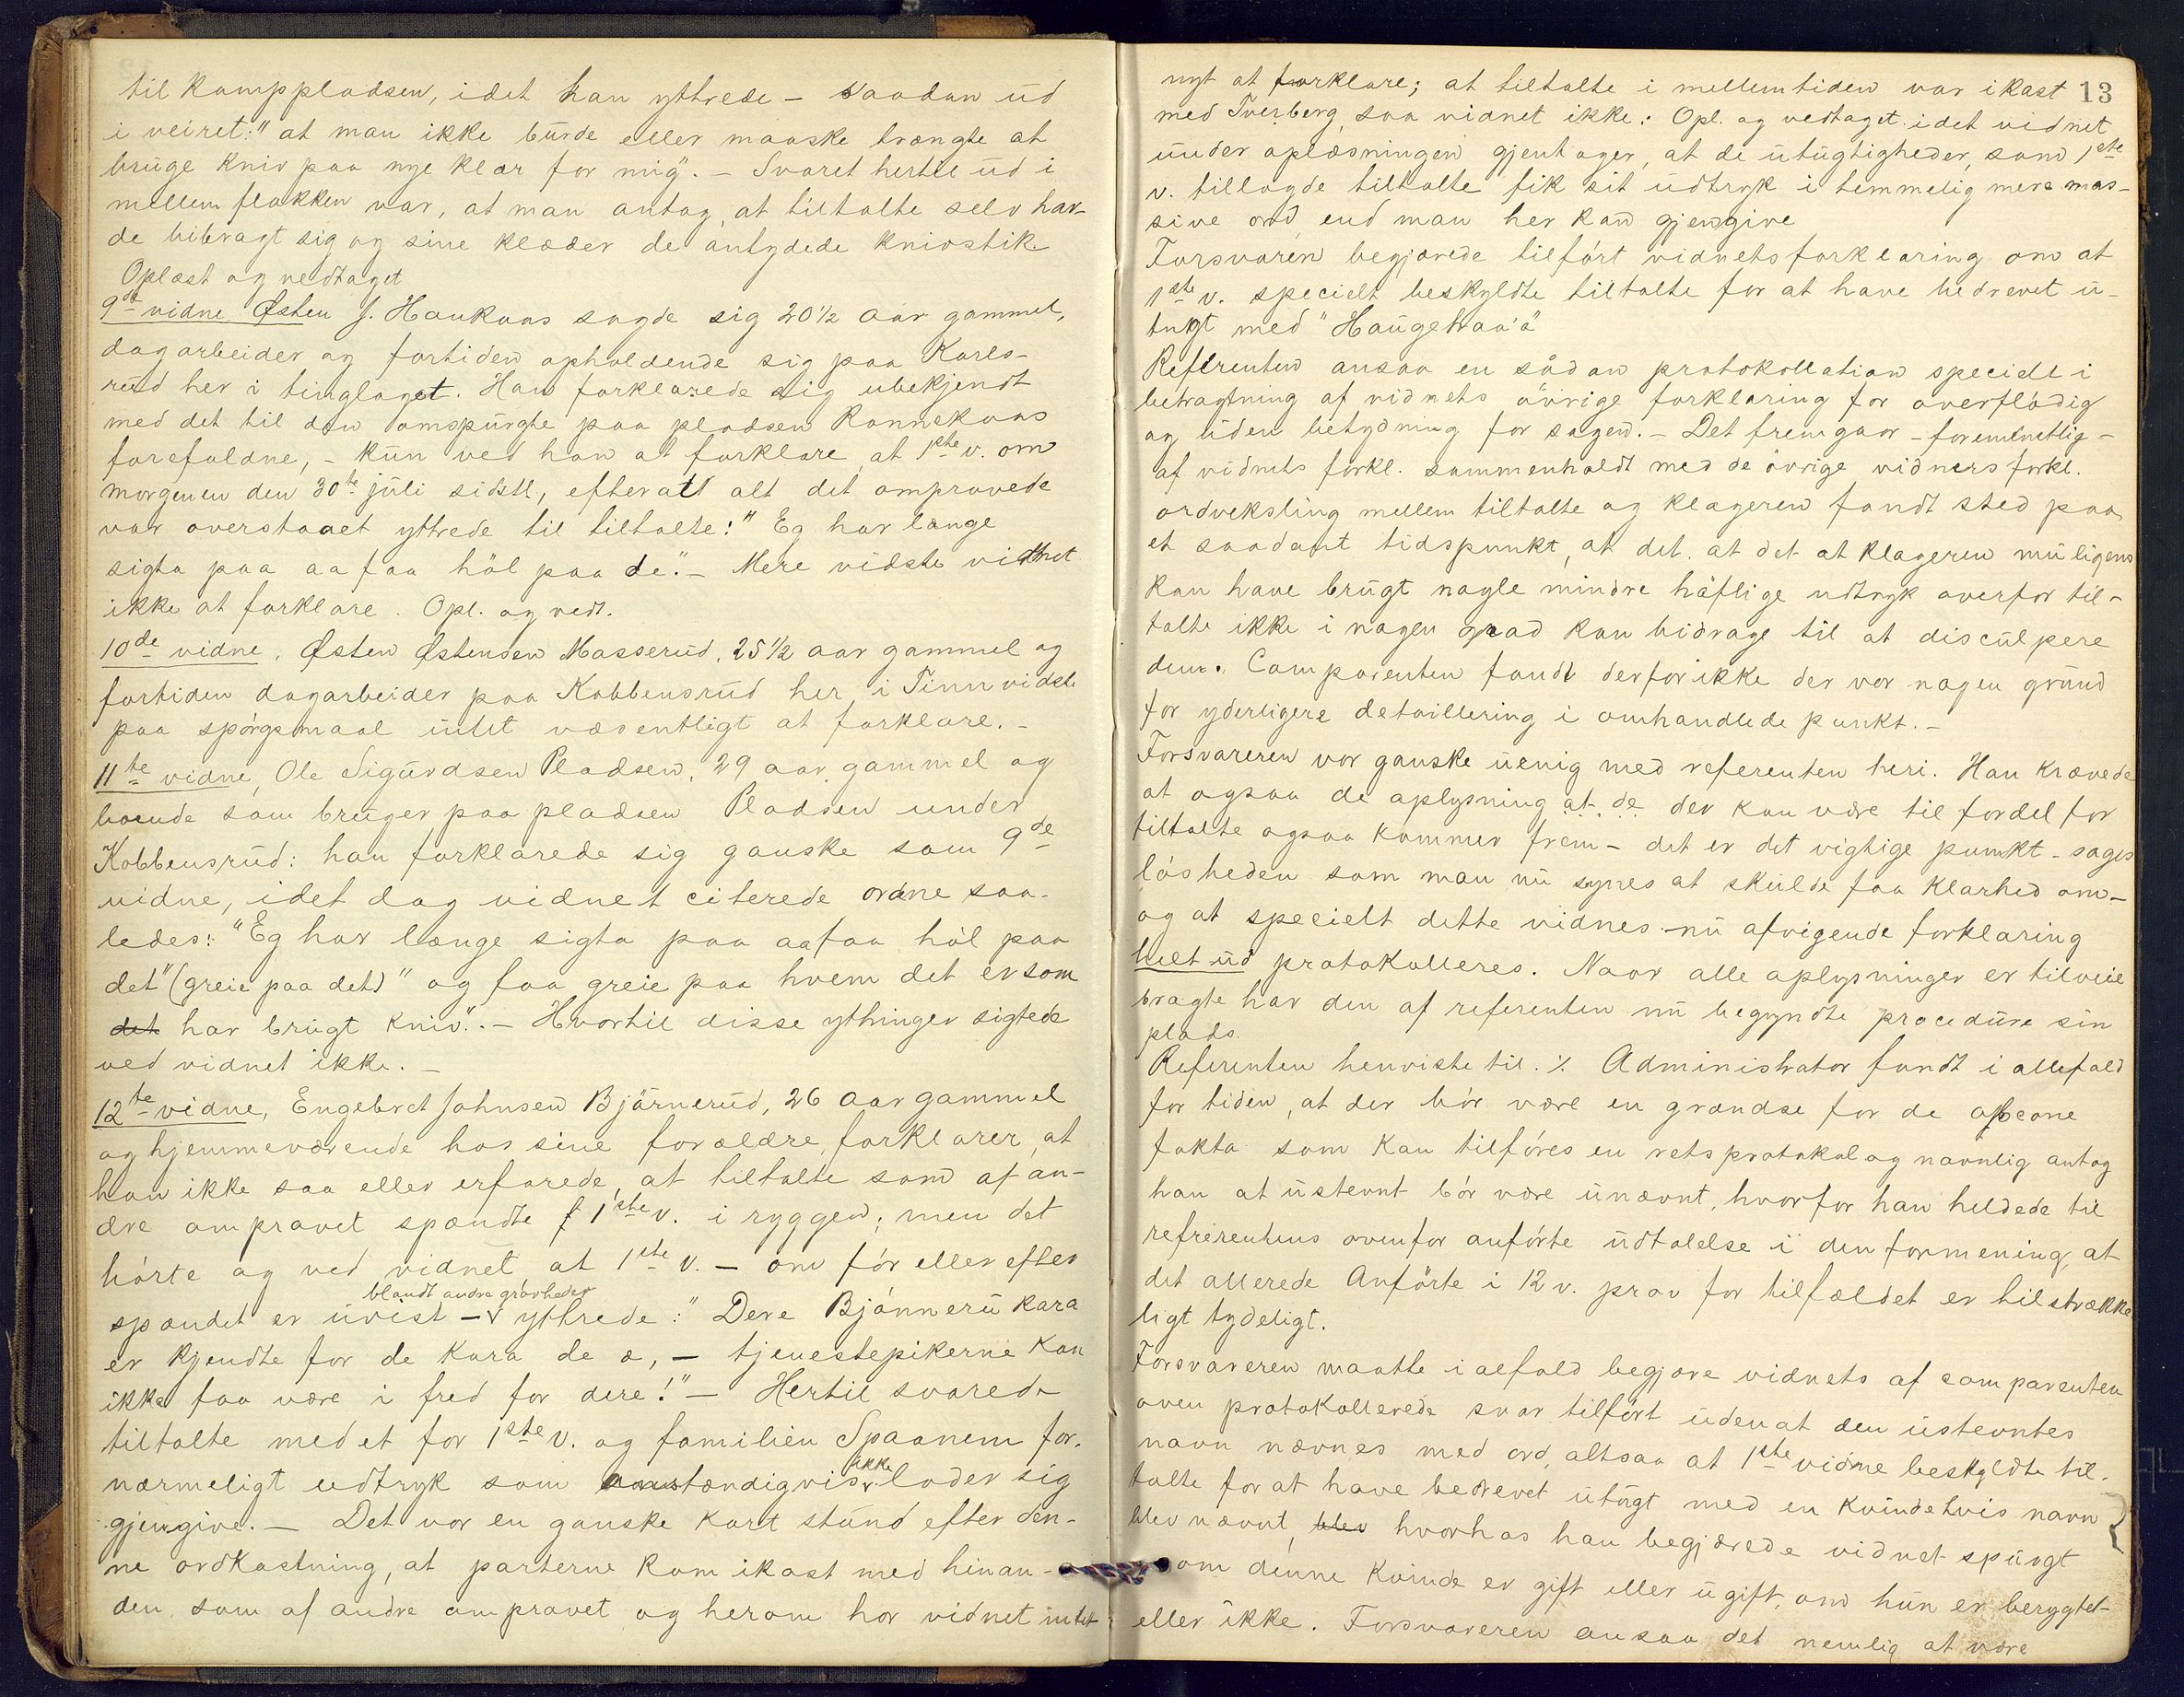 til kamppladsen, idet han yttrede – saadan ud
i veiret: "at man ikke burde eller maaske trængte at
bruge kniv paa nye klær for mig". – Svaret hertil ud i
mellem flokken var, at man antog, at tiltalte selv hav-
de bibragt sig og sine klæder de antydede knivstik
Oplæst og vedtaget
9de vidne Østen J. Haukaas sagde sig 20½ aar gammel,
dagarbeider og fortiden opholdende sig paa Karls-
rud her i tinglaget. Han forklarede sig ubekjendt
med det til den omspurgte paa pladsen Rannekaas
forefaldne, – kun ved han at forklare, at 1ste v. om
morgenen den 30te juli sidstl., efterat alt det omprovede
var overstaaet yttrede til tiltalte: "Eg har længe
sigta paa aa faa hôl paa de". – Mere vidste vidnet
ikke at forklare. Opl. og vedt.
10de vidne, Østen Østensen Masserud, 25½ aar gammel og
fortiden dagarbeider paa Kobbensrud her i Tinn vidste
paa spörgsmaal intet væsentligt at forklare. –
11te vidne, Ole Sigurdsen Pladsen, 29 aar gammel og
boende som bruger paa pladsen Pladsen under
Kobbensrud: han forklarede sig ganske som 9de
vidne, idet dog vidnet citerede ordne saa-
ledes: "Eg har længe sigta paa aafaa hôl paa
det" (greie paa det) "og faa greie paa hvem det er som
det har brugt kniv". – Hvortil disse ythringer sigtede
ved vidnet ikke. –
12te vidne, Engebret Johnsen Björnerud, 26 aar gammel
og hjemmeværende hos sine forældre, forklarer, at
han ikke saa eller erfarede, at tiltalte som af an-
dre omprovet spændte f 1ste v. i ryggen; men det
hörte og ved vidnet at 1ste v. – om för eller efter
blandt andre grovheder
spændet er uvist – v yttrede: "Dere Bjönneru kara
er kjendte for de kara de æ, – tjenestepikerne kan
ikke faa være i fred for dere!" – Hertil svarede
tiltalte med et for 1ste v. og familien Spaanem for-
ikke
nærmeligt udtryk som anstændigvis v lader sig
gjengive. – Det var en ganske kort stund efter den-
ne ordkastning, at parterne kom ikast med hinan-
den som af andre omprovet og herom har vidnet intet
13
nyt at forklare; at tiltalte i mellemtiden var ikast
med Tverberg, saa vidnet ikke: Opl. og vedtaget idet vidnet
under oplæsningen gjentager, at de utugtigheder, som 1ste
v. tillagde tiltalte fik sit udtryk i temmelig mere mas-
sive ord, end man her kan gjengive
Forsvaren begjærede tilfört vidnets forklaring om at
1ste v. specielt beskyldte tiltalte for at have bedrevet u-
tugt med "
Referenten ansaa en sådan protokollation specielt i
betragtning af vidnets övrige forklaring for overflödig
og uden betydning for sagen. – Det fremgaar – formentlig –
af vidnets forkl. sammenholdt med de övrige vidners forkl.
ordveksling mellem tiltalte og klageren fandt sted paa
et saadant tidspunkt, at det. at det at klageren muligens
kan have brugt nogle mindre höflige udtryk overfor til-
talte ikke i nogen grad kan bidrage til at disculpere
dem. Comparenten fandt derfor ikke der var nogen grund
for yderligere detaillering i omhandlede punkt. –
Forsvareren var ganske uenig med referenten heri. Han krævede
at ogsaa de oplysning at de der kan være til fordel for
tiltalte ogsaa kommer frem – det er det vigtige punkt – sages
lösheden som man nu synes at skulde faa klarhed om –
og at specielt dette vidnes nu afvigende forklaring
helt ud protokolleres. Naar alle oplysninger er tilveie
bragte har den af referenten nu begyndte procedure sin
plads.
Referenten henviste til ./. Administrator fandt i allefald
for tiden, at der bör være en grændse for de
fakta som kan tilföres en retsprotokol og navnlig antog
han at ustevnt bör være unævnt, hvorfor han heldede til
refrerentens ovenfor anförte udtalelse i den formening, at
det allerede Anförte i 12 v. prov for tilfældet er tilstrække
ligt tydeligt.
Forsvareren maatte i alfald begjære vidnets af comparenten
oven protokollerede svar tilfört uden at den ustevntes
navn nævnes med ord, altsaa at 1ste vidne beskyldte til-
talte for at have bedrevet utugt med en kvinde hvis navn
blev nævnt, blev hvorhos han begjærede vidnet spurgt
om denne kvinde er gift eller ugift, om hun er berygtet
eller ikke. Forsvareren ansaa det nemlig at være